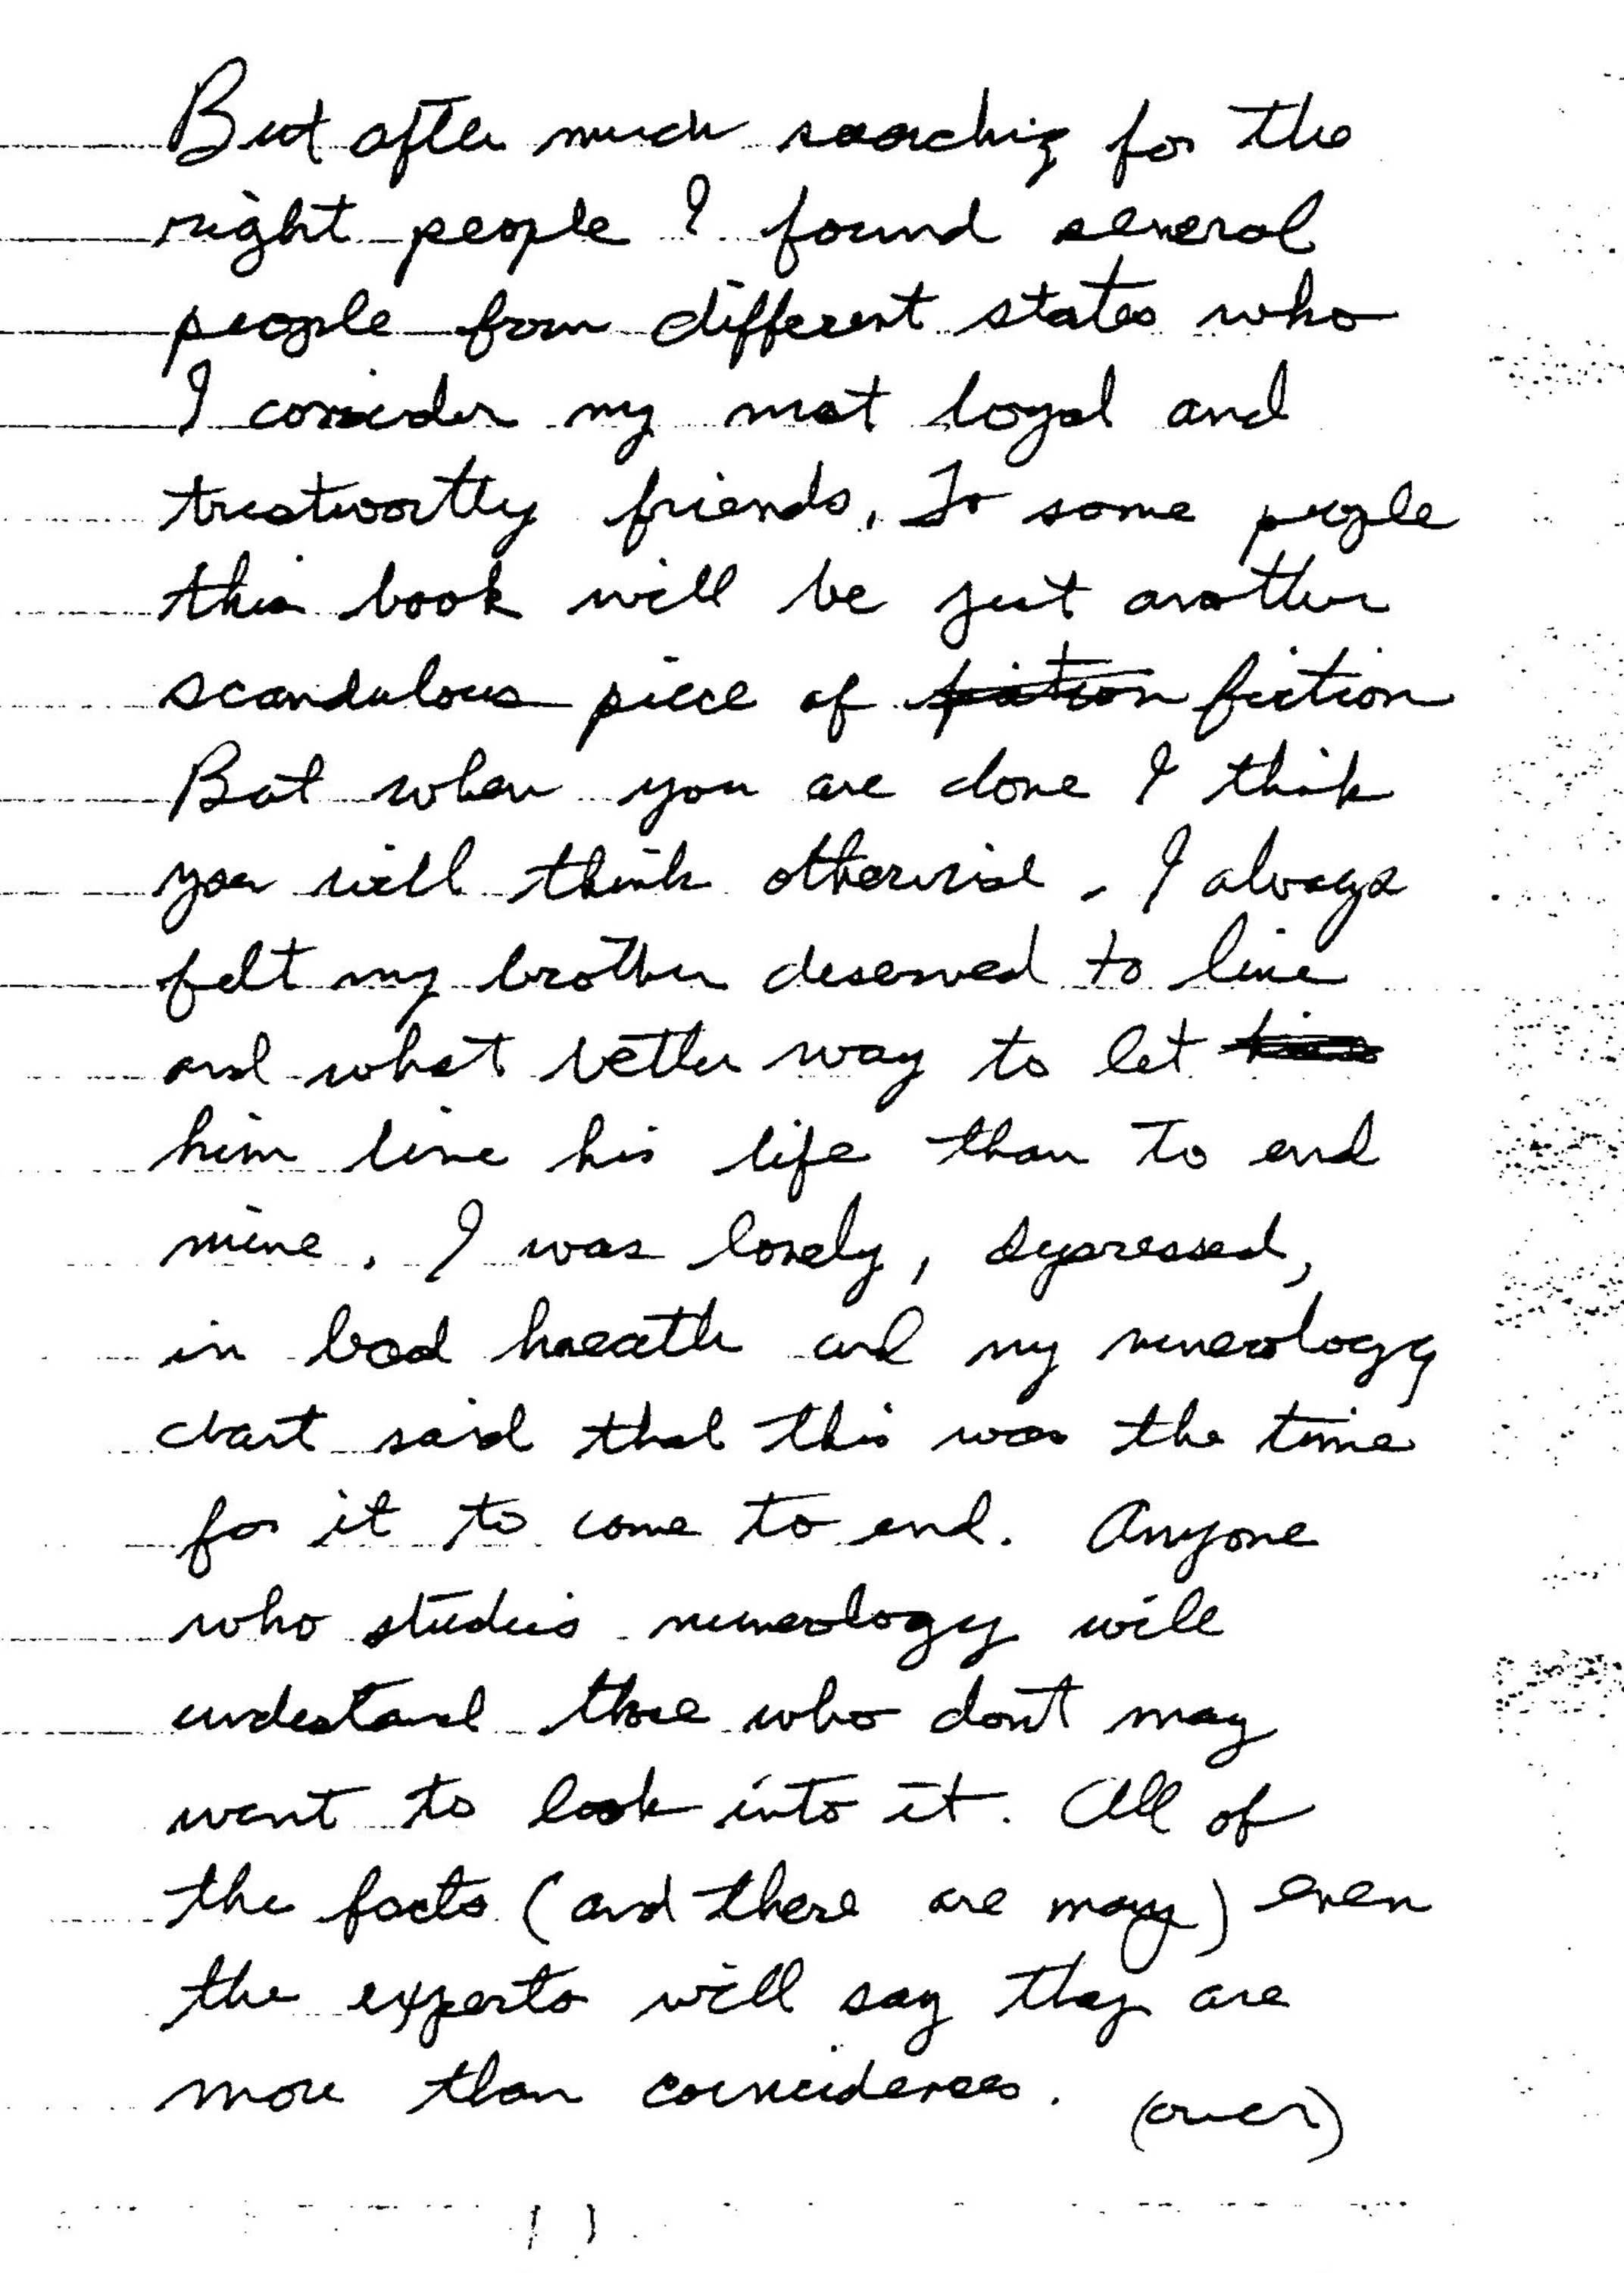 But after much searching for the
right people I found several
people from different states who
I consider my most loyal and
trustworthy friends. To some people
this book will be just another
scandulous piece of fiction fiction
But when you are done I think
you will think otherwise. I always
felt my brother deserved to live
and what better way to let
him live his life than to end
mine. I was lonely, depressed,
in bad heath and my numerology
chart said that this was the time
for it to come to end. Anyone
who studies numerology will
undestand those who dont may
want to look into it. All of
the facts (and there are many) even
the experts will say they are
more than coincidences. (over)